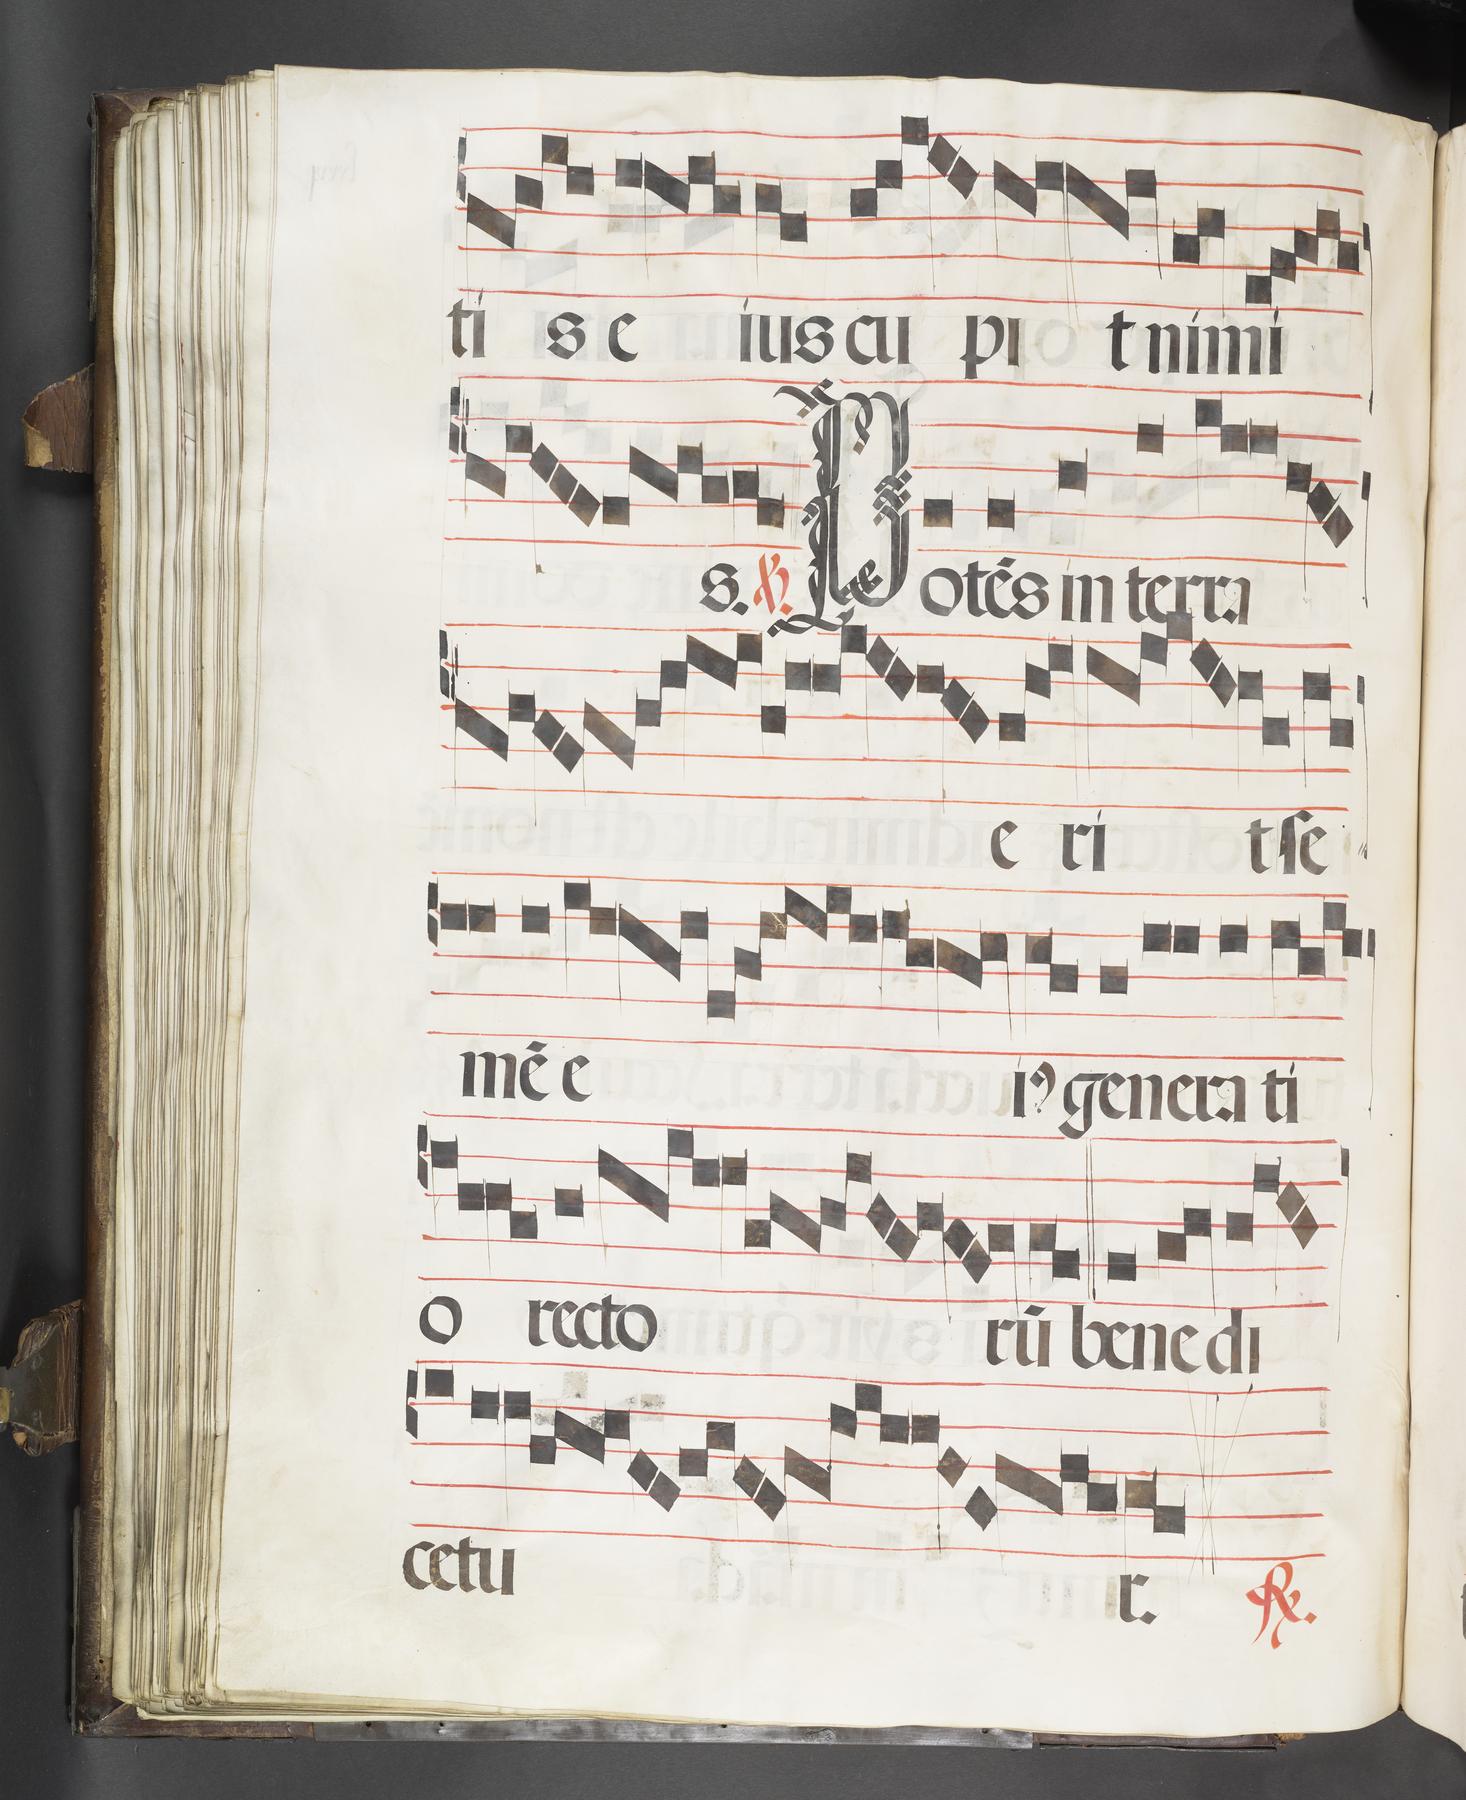 ti s e ius cu pi t nimi
s. ℣. Potēs in terra
e ri t se
mē e iꝰ genera ti
o recto rū bene di
cetu r. ℟.